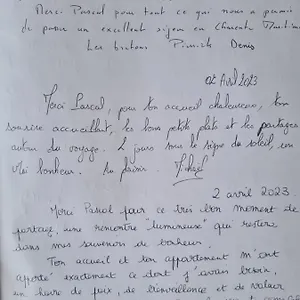 Merci Pascal pour tout ce qui nous a permis
de passer un excellent séjour en Charente Maritime
Les bretons Denis
02 Avril 2023
Merci Pascal, pour ton accueil chaleureux, ton
sourire accueillant, les bons petits plats et les partages
autour du voyage. 2 jours sous le signe du soleil, un
vrai bonheur. Au plaisir.
2 avril 2023.
Merci Pascal pour ce très bon moment de
partage, une rencontre "lumineuse" qui restera
dans mes souvenirs de bonheur.
Ton accueil et ton appartement m'ont
apporté exactement ce dont j'avais besoin,
un havre de paix, de bienveillance et de valeur